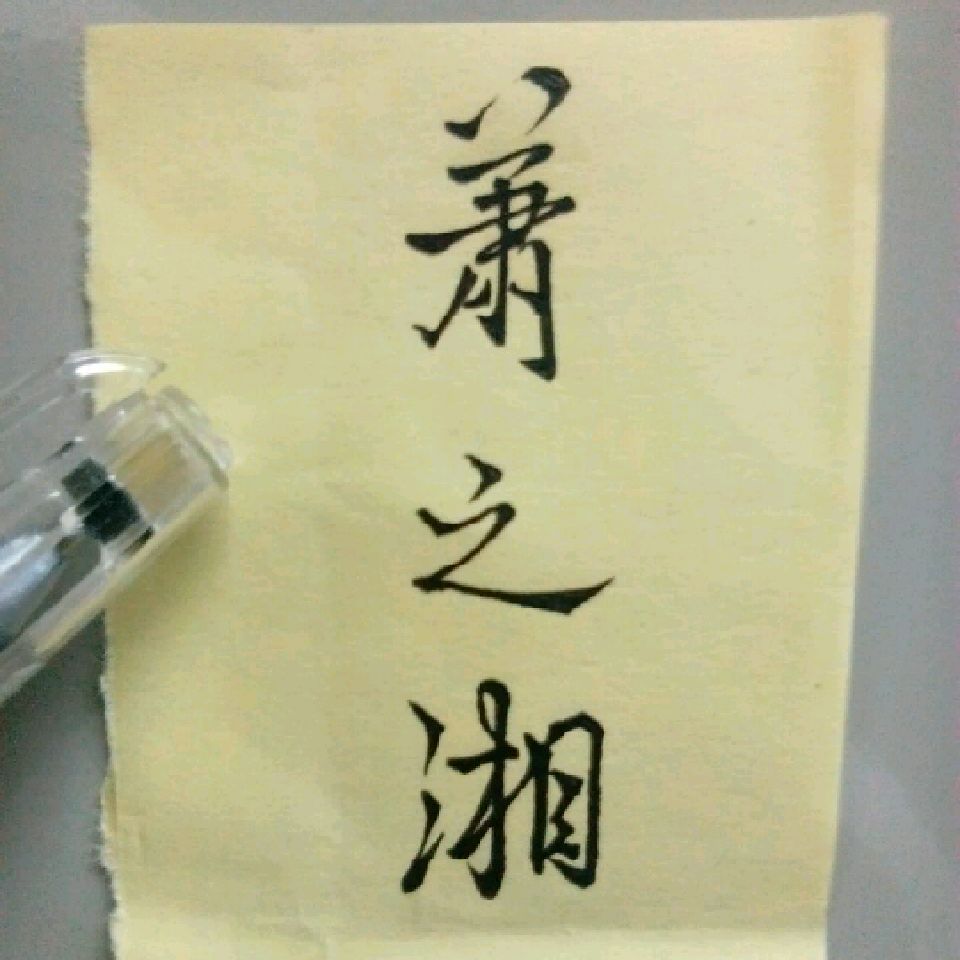 萧之湘